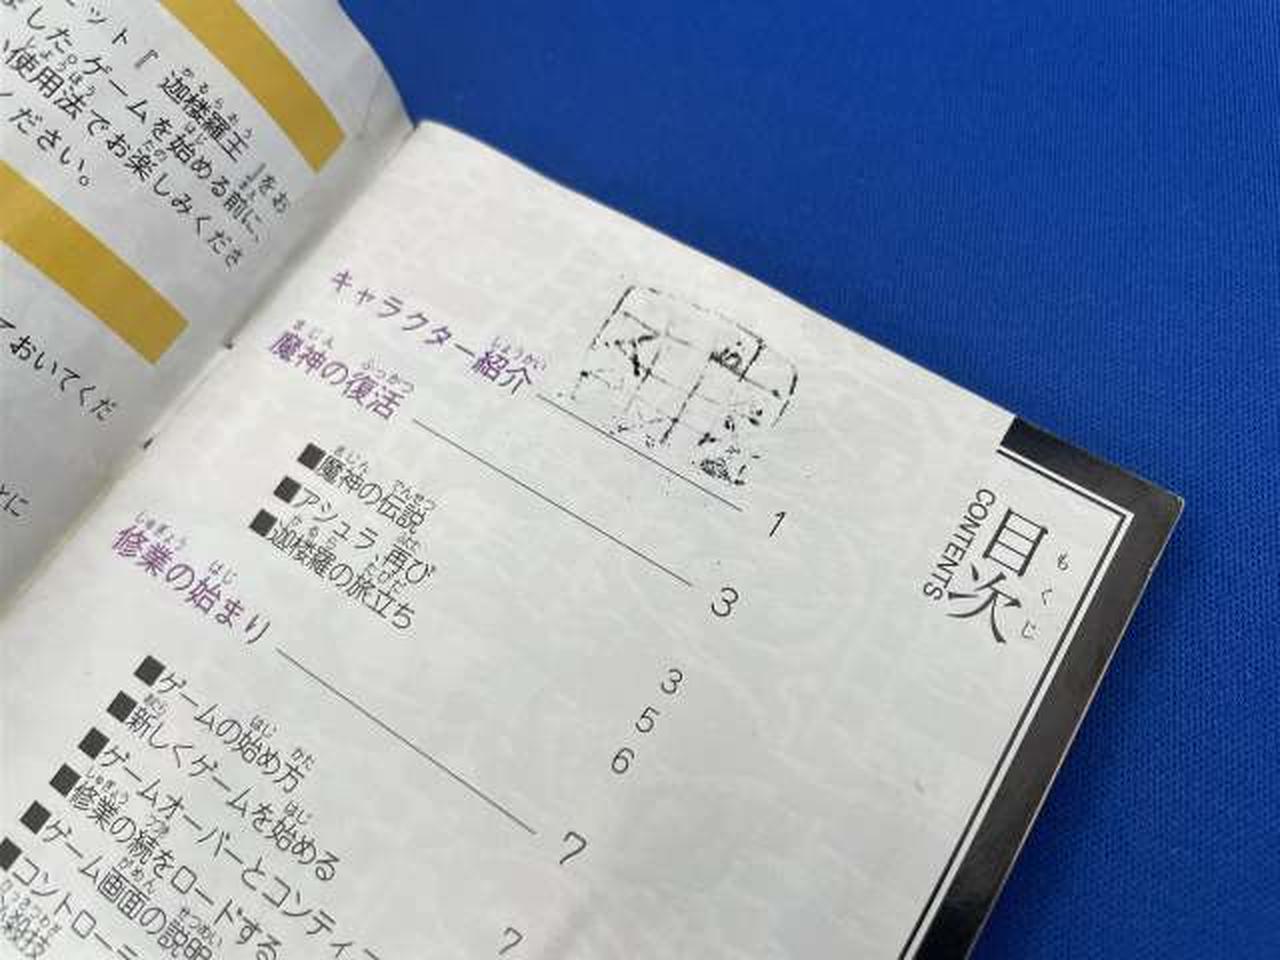 ット『迦楼羅王』をお
ました。ゲームを始める前に、
使用法でお楽しみくださ
ください。
ておいてくだ
とに
目次
もくじ
CONTENTS
キャラクター紹介 1
魔神の復活 3
■魔神の伝説 3
■アシュラ、再び 5
■迦楼羅の旅立ち 6
修業の始まり 7
■ゲームの始め方 7
■新しくゲームを始める
■ゲームオーバーとコンティ
■修業の続をロードする
■ゲーム画面の説明
■コントロー